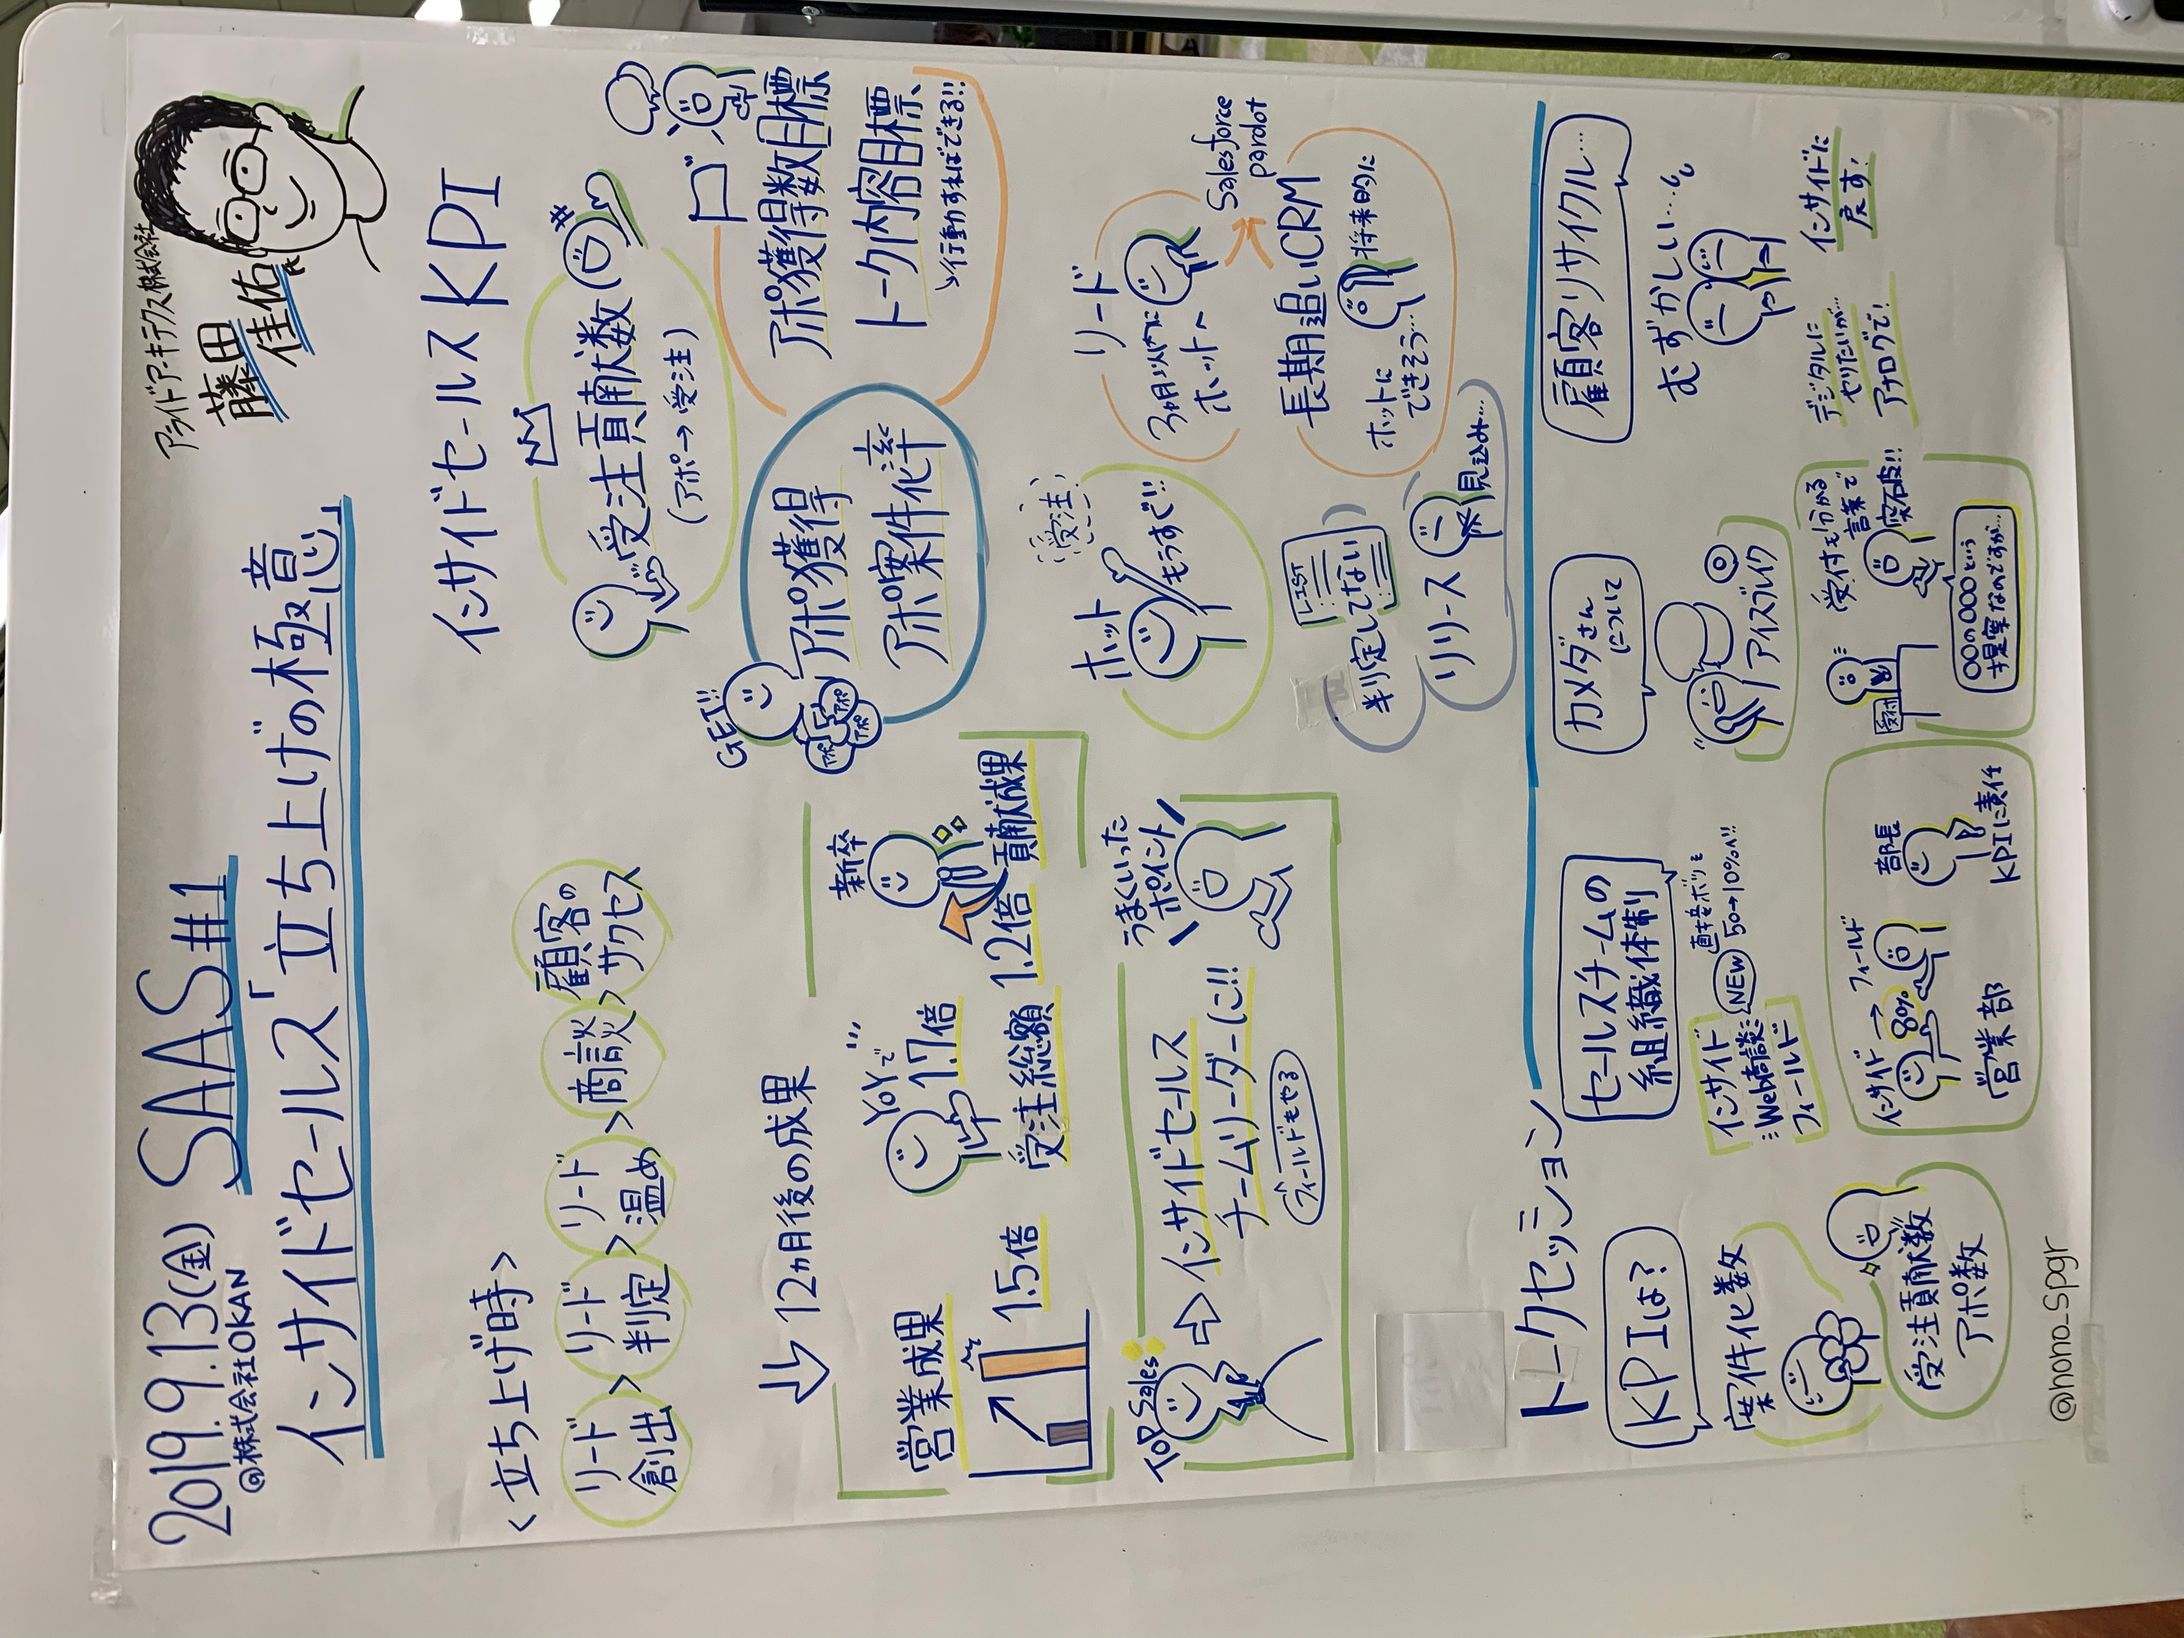 2019.9.13(金) SAAS#1
@株式会社OKAN
インサイドセールス「立ち上げの極意」
アライドアーキテクツ株式会社
藤田
佳佑
<立ち上げ時>
リード
創出
>
リード
判定
>
リード
温め
>
商談
>
顧客の
サクセス
12ヵ月後の成果
営業成果
1.5倍
YoYで
1.7倍
受注総額
新卒
1.2倍 貢献成果
うまくいった
ポイント
TOP Sales
インサイドセールス
チームリーダーに!!
フィールドもやる
インサイドセールス KPI
受注貢献数
(アポ→受注)
GET!!
アポ
アポ
アポ
アポ獲得
アポ案件化率
アポ獲得数目標
トーク内容目標
↳行動すればできる!!
受注
ホット
もうすぐ!!
リード
3ヵ月以内に
ホットへ
Salesforce
pardot
長期追いCRM
ホットに
できそう…
将来的に
LIST
判定してない
リリース
見込み….
トークセッション
KPIは?
案件化数
受注貢献数
アポ数
セールスチームの
組織体制
インサイド
Web商談
フィールド
NEW
50→10%へ!!
インサイド→フィールド
80%
営業部
部長
KPIに責任
カメダさん
について
アイスブレイク
受付
受付も分かる
言葉で
突破!!
〇〇の〇〇〇という
提案なのですが…
顧客リサイクル…
むずかしい…
デジタルに
やりたいが…
アナログで!
インサイドに
戻す!
@nono_spgr